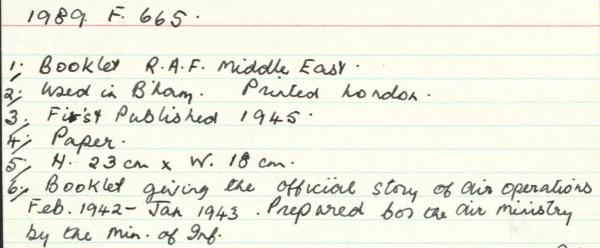 1989. F. 665.
1; Booklet R.A.F. Middle East.
2; Used in B'ham. Printed London.
3. First Published 1945.
4; Paper.
5; H. 23 cm x W. 18 cm.
6; Booklet giving the official story of air operations
Feb. 1942 - Jan 1943. Prepared for the air ministry
by the Min. of Inf.